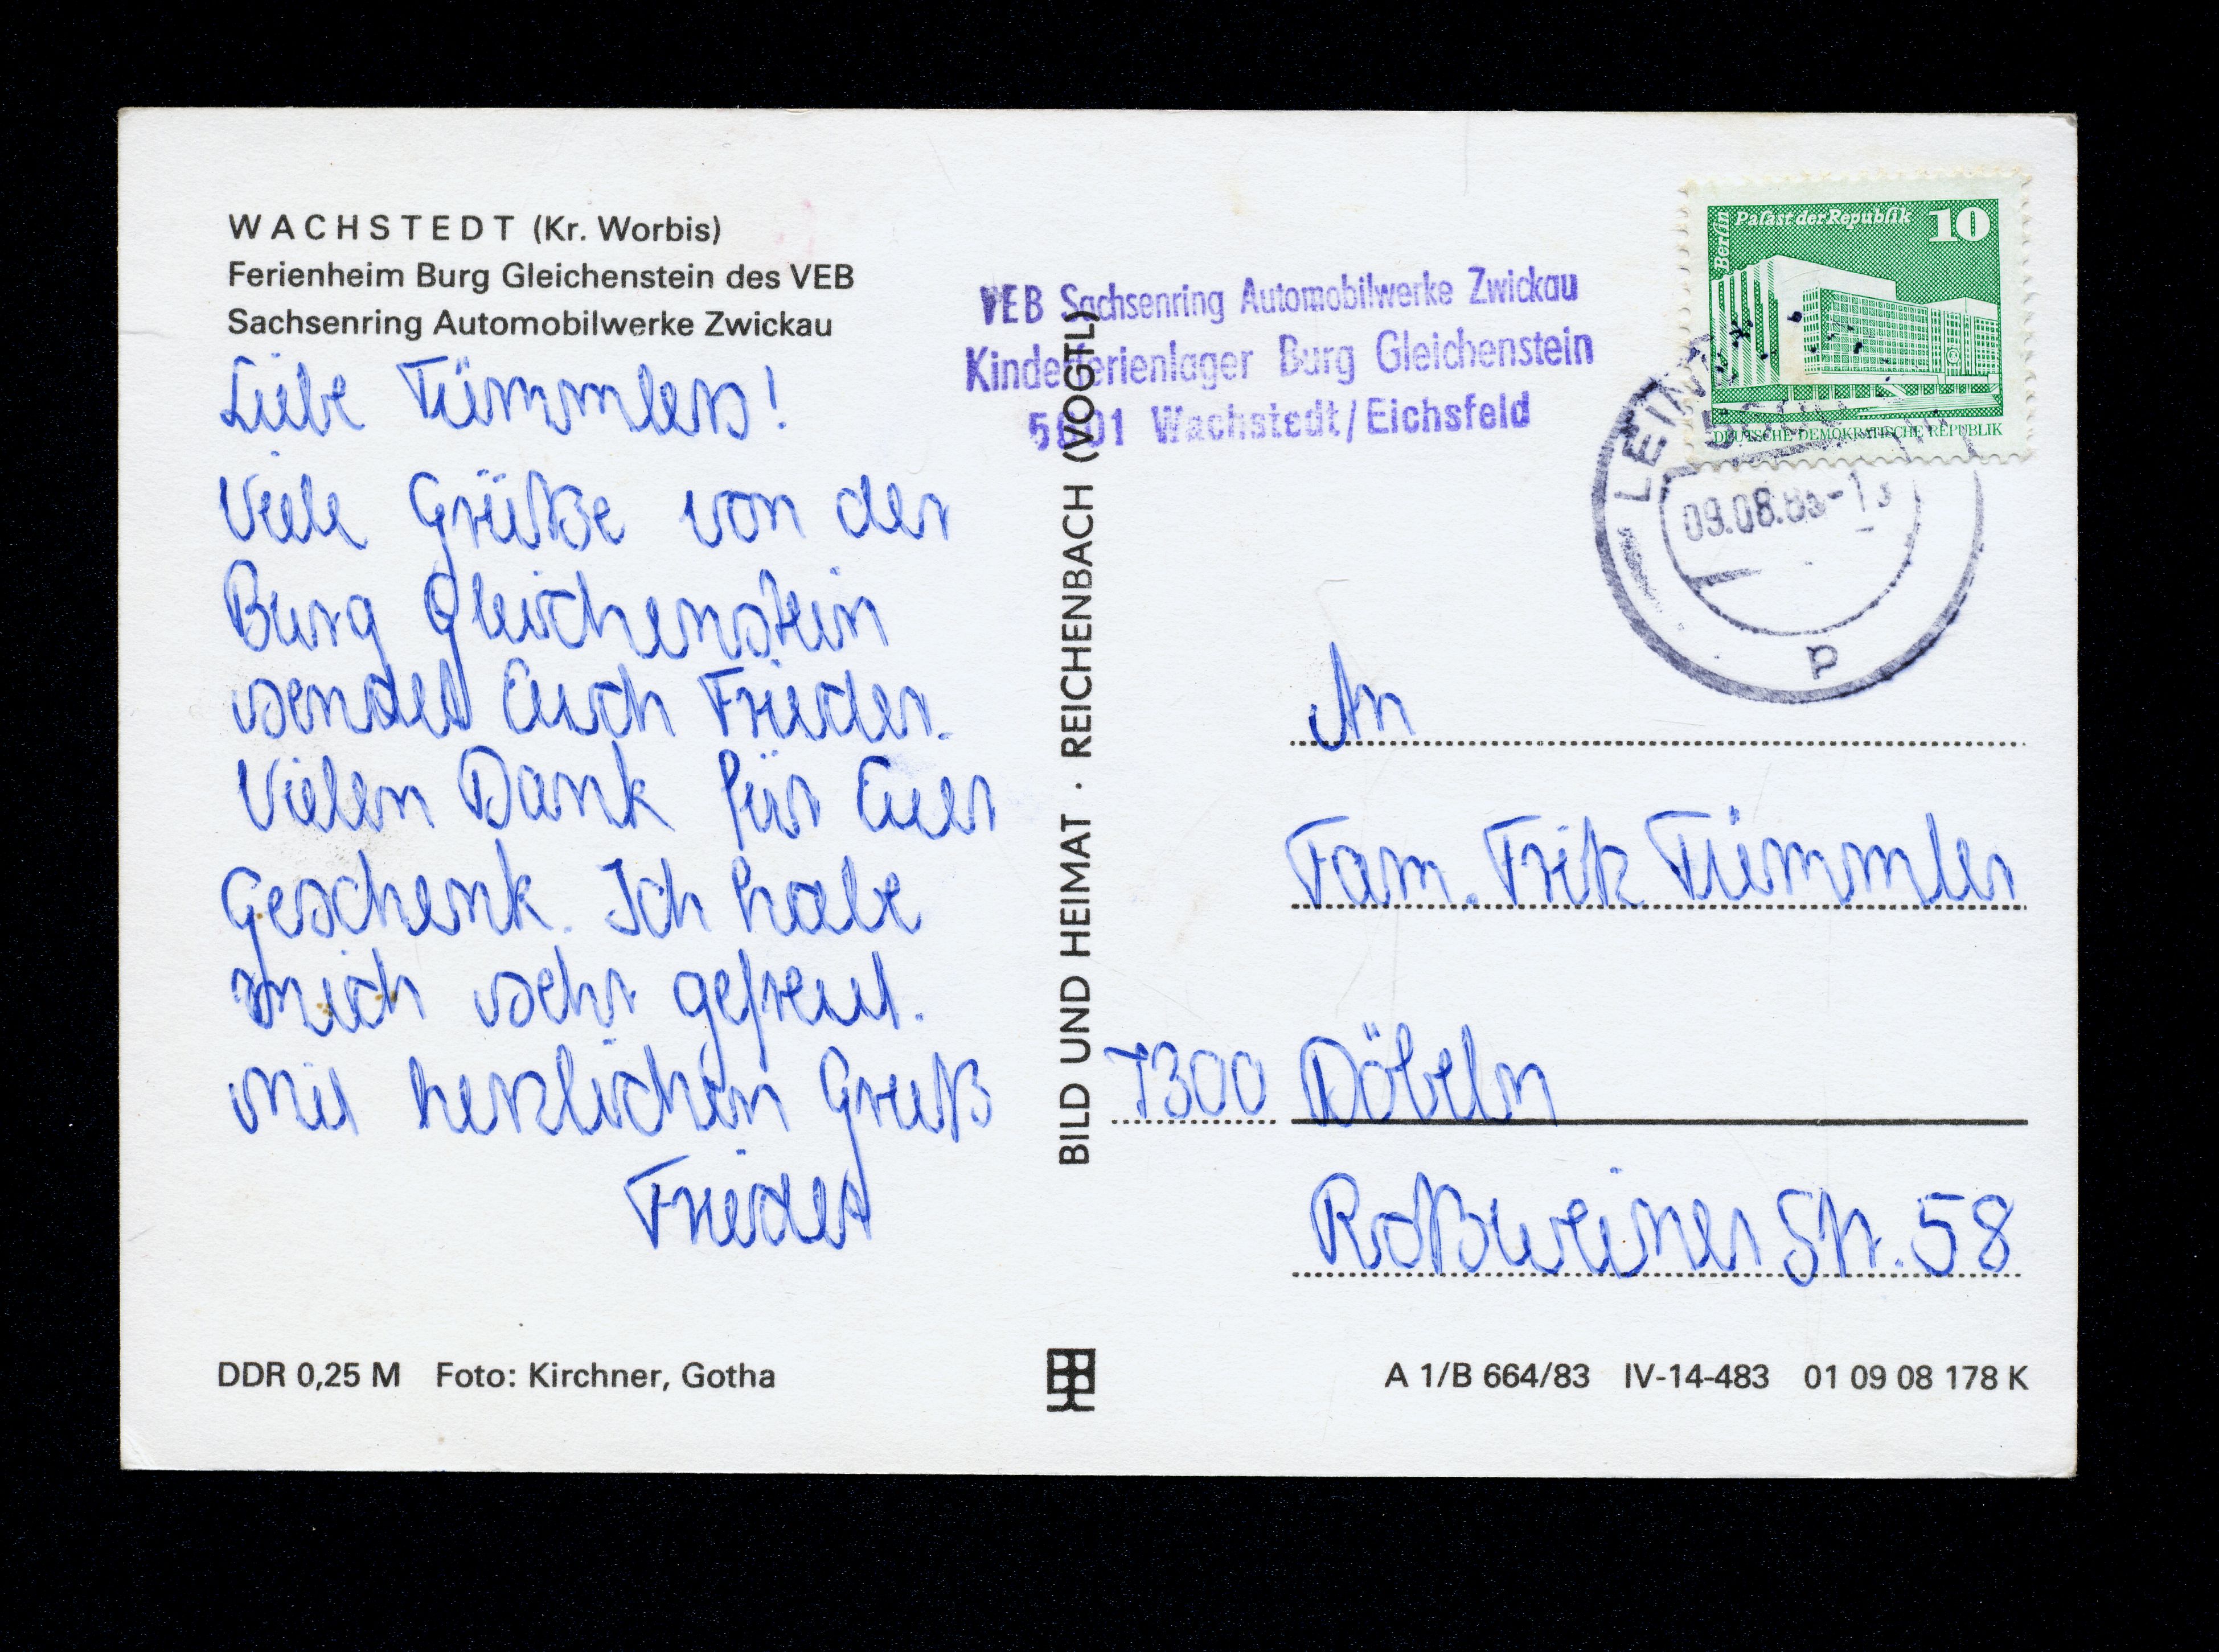 WACHSTEDT (Kr. Worbis)
Ferienheim Burg Gleichenstein des VEB
Sachsenring Automobilwerke Zwickau
Liebe Tümmlers!
Viele Grüße von der
Burg Gleichenstein
sendet Euch Frieder.
Vielen Dank für Euer
Geschenk. Ich habe
mich sehr gefreut.
Mit herzlichem Gruß
Frieder
DDR 0,25 M Foto: Kirchner, Gotha
BILD UND HEIMAT · REICHENBACH (VOGTL)
VEB Sachsenring Automobilwerke Zwickau
Kinderferienlager Burg Gleichenstein
5601 Wachstedt/Eichsfeld
Berlin
Palast der Republik 10
DEUTSCHE DEMOKRATISCHE REPUBLIK
09.08.
p
An
Fam. Fritz Tümmler
7300 Döbeln
Roßweiner Str. 58
A 1/B 664/83 IV-14-483 01 09 08 178 K